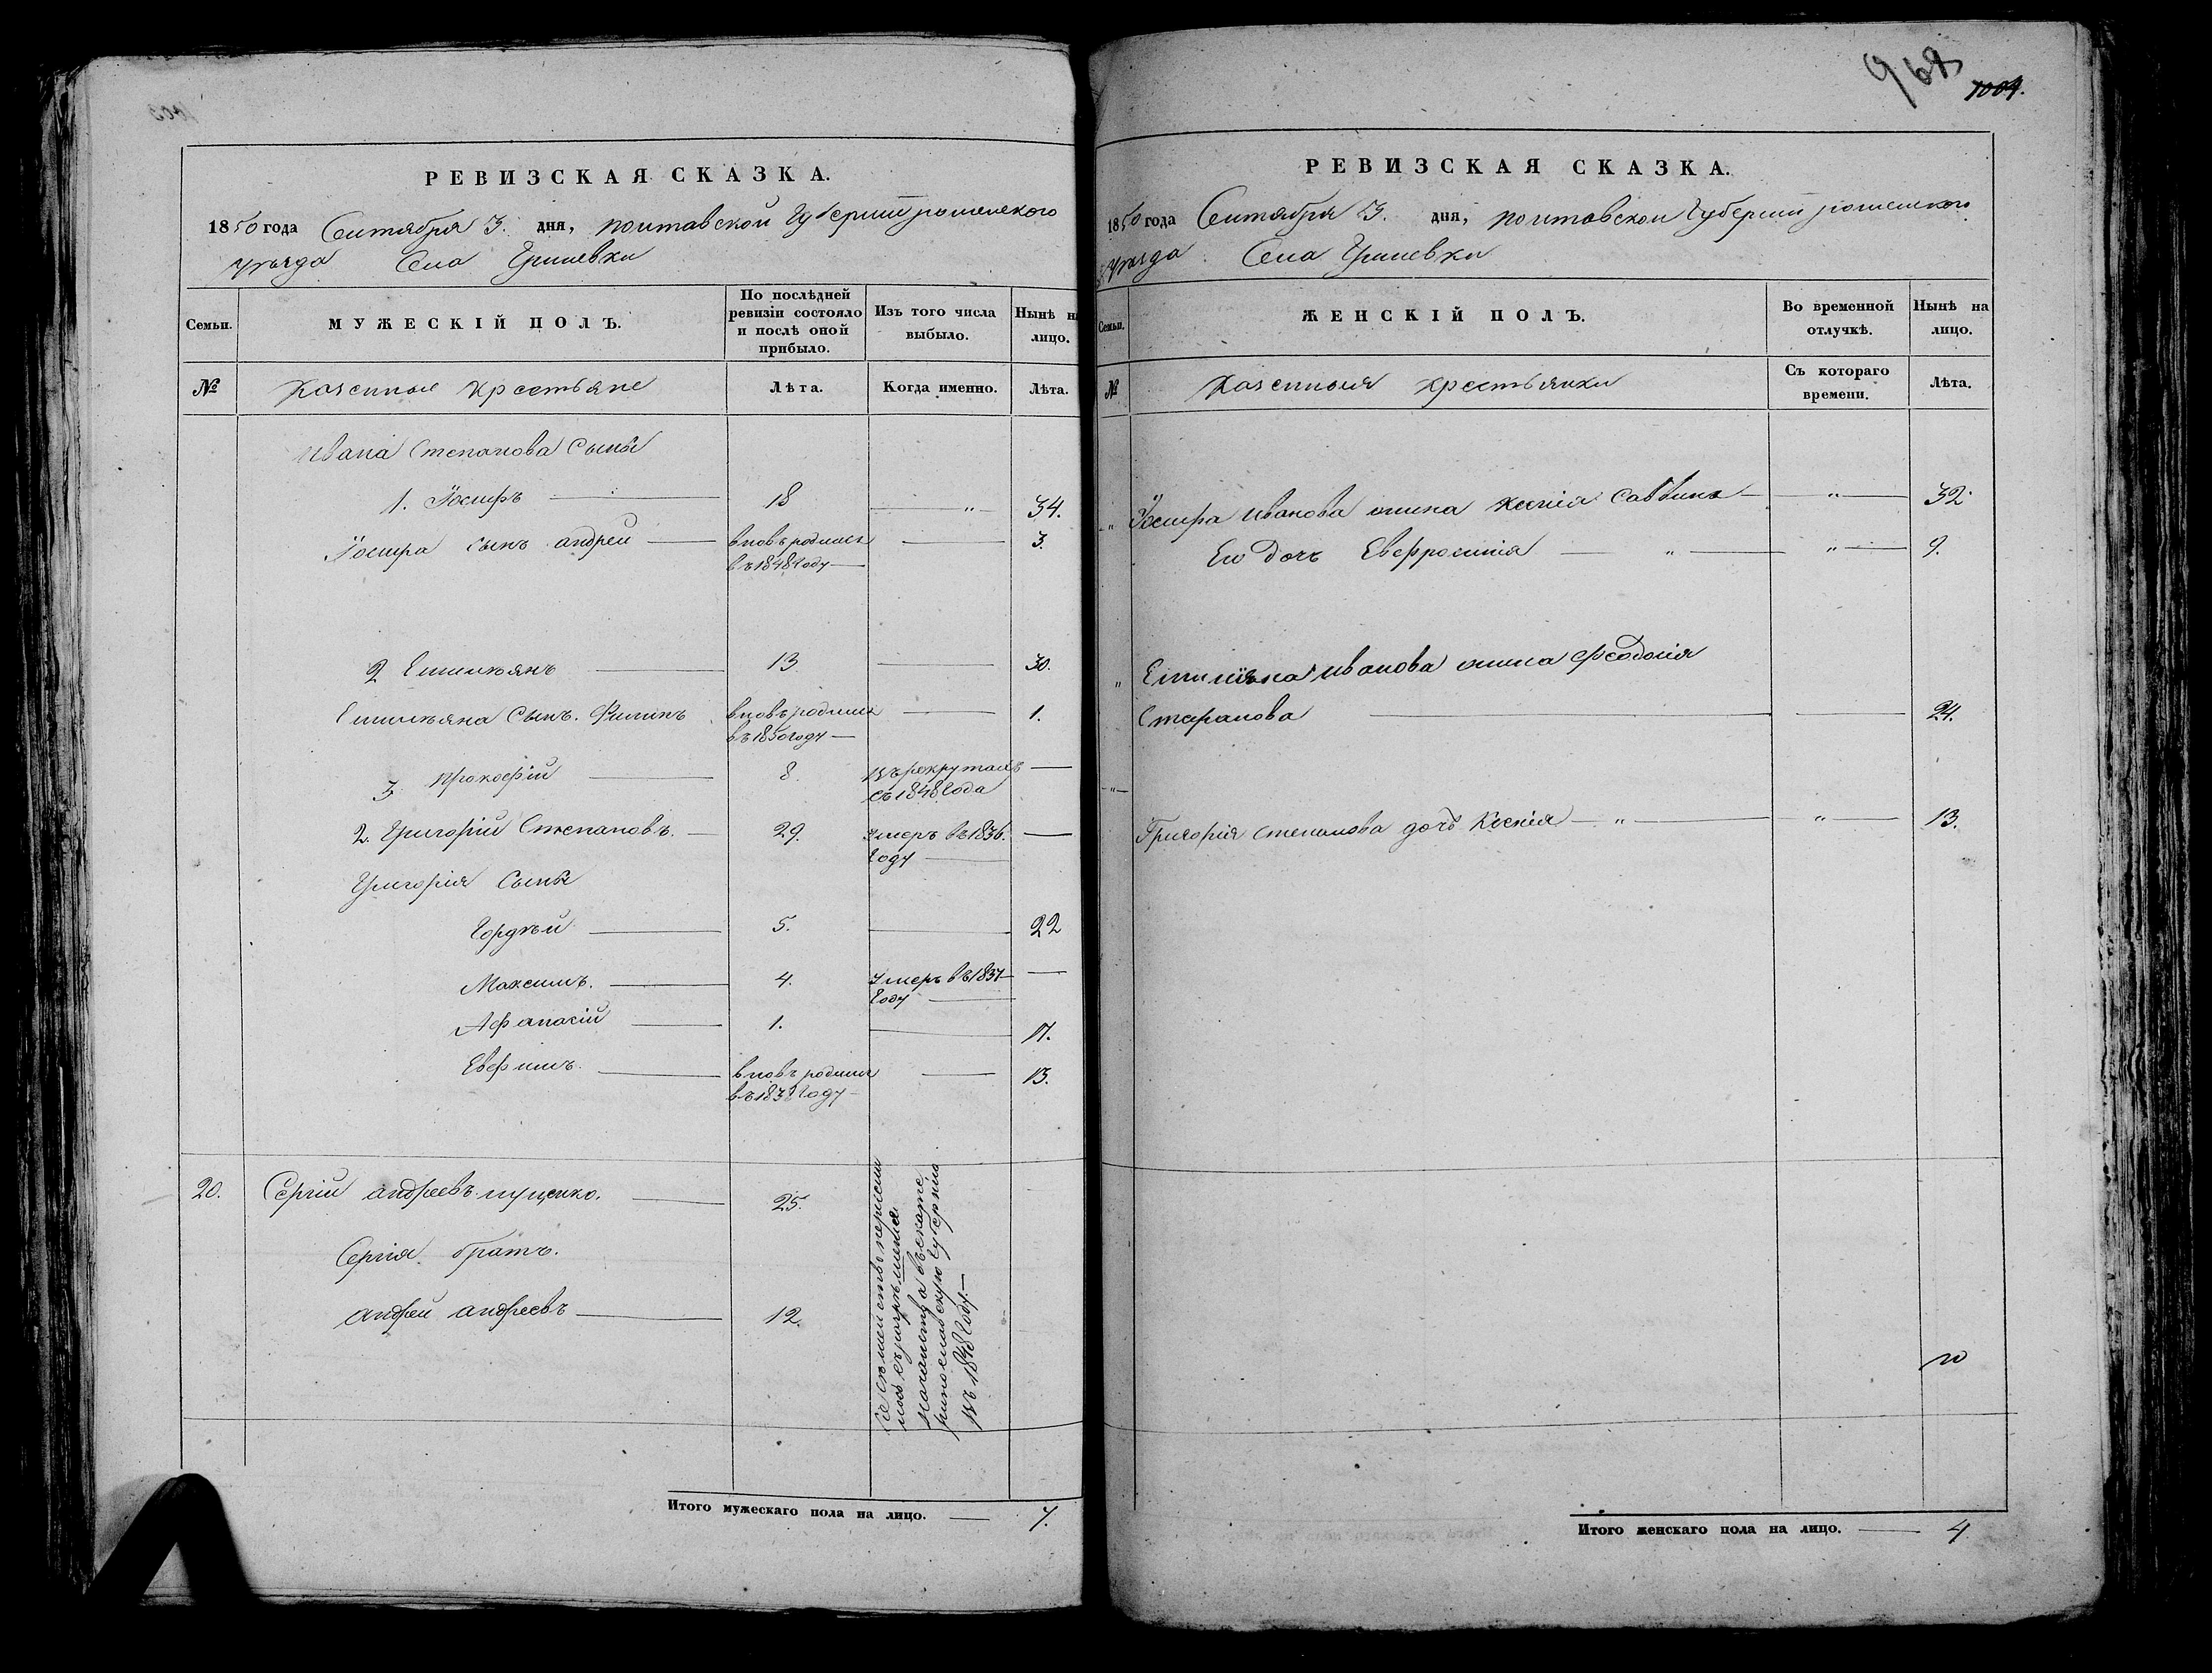 968
1004.
РЕВИЗСКАЯ СКАЗКА.
1850 года Сентября 3. дня, полтавской Губернии роменского
уѣзда Села Гришевки
Семьи.
МУЖЕСКІЙ ПОЛЪ.
По послѣдней ревизіи состояло и послѣ оной прибыло.
Изъ того числа выбыло.
Нынѣ на лицо.
№
Казенные крестьяне
Лѣта.
Когда именно.
Лѣта.
Ивана Степанова сыны
1. Іосифъ 18 " 34.
Іосифа сынъ андрей вновь родился 3.
въ 1848 Году
2 Емильянъ 13 30.
Емильяна Сынъ. Филипъ вновь родился 1.
въ 1850 году
3 Прокофій 8. Въ рекрутахъ
съ 1848 Года
2. Григорій Степановъ. 29. Умеръ въ 1836.
Году
Григорія Сыны
Гордѣй 5. 22
Максимъ. 4. Умеръ въ 1837
Году
Афанасій 1. 17.
Евфимъ. вновь родился 13.
въ 183 Году
20. Сергій андреевъ луценко. 25.
Сергія братъ.
андрей андреевъ 12.
Сіе семейство
въ екате
ринославскую Губернію
Въ 1848 Году.
Итого мужескаго пола на лицо. 7.
РЕВИЗСКАЯ СКАЗКА.
1850 года Сентября 3. дня, полтавской Губернии роменского
уѣзда Села Гришевки
Семьи.
ЖЕНСКІЙ ПОЛЪ.
Во временной отлучкѣ.
Нынѣ на лицо.
№
Казенныя крестьянки
Съ котораго времени.
Лѣта.
" Іосифа Иванова жина Ксенія Саввина " 32
Его дочь Евфросинія " " 9.
" Емиліяна Иванова жина Феодосія
Стефанова 24.
"
Григорія степанова дочь Ксенія " " 13.
Итого женскаго пола на лицо. 4